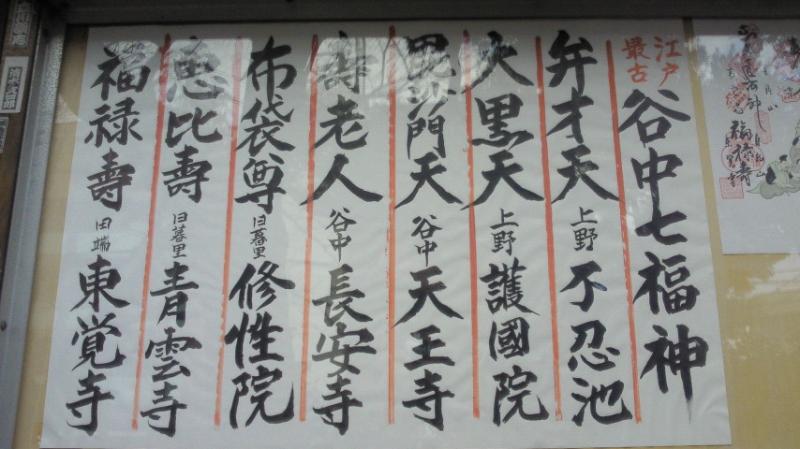 江戸最古 谷中七福神
弁才天 上野 不忍池
大黒天 上野 護國院
毘沙門天 谷中 天王寺
寿老人 谷中 長安寺
布袋尊 日暮里 修性院
恵比壽 日暮里 青雲寺
福禄壽 田端 東覚寺